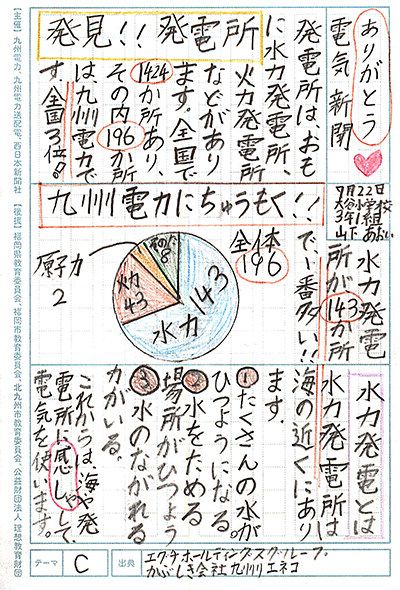 ありがとう
電気新聞
7月22日
大谷小学校
3年1組
山下あおい
発見!!発電所
発電所はおも
に水力発電所、
火力発電所
などがあり
ます。全国で
1424か所あり、
その内196か所
は九州電力で
す。全国3位!!
九州電力にちゅうもく!!
水力発電
所が143か所
で、一番多い!!
全体
196
水力
143
火力
43
その他
8
原子力
2
水力発電とは
水力発電所は
海の近くにあり
ます。
①たくさんの水が
ひつようになる。
②水をためる
場所がひつよう
③水のながれる
力がいる。
これからは、海や発
電所に感しゃして、
電気を使います。
テーマ C 出典 エクチホールディングスグループ.
かぶしき会社九州エネコ
【主催】九州電力、九州電力送配電、西日本新聞社 【後援】福岡県教育委員会、福岡市教育委員会、北九州市教育委員会、公益財団法人 理想教育財団